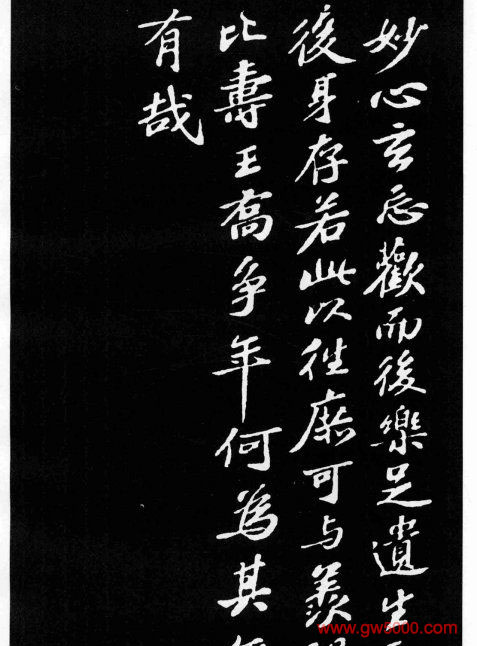 妙心玄忘歡而後樂足遺生
後身存若此以往庶可与羨
比壽王喬争年何為其
有哉
www.gw5000.com